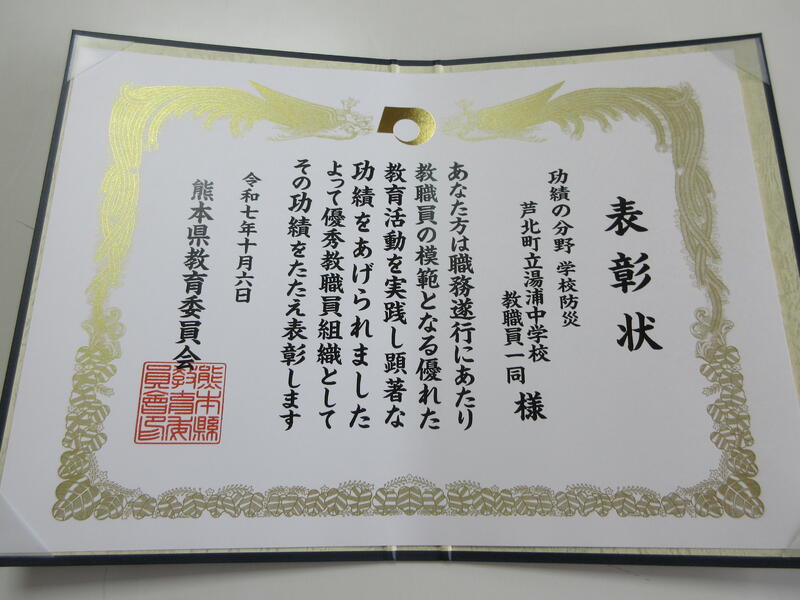 表彰状
功績の分野 学校防災
芦北町立湯浦中学校
教職員一同 様
あなた方は職務遂行にあたり
教職員の模範となる優れた
教育活動を実践し顕著な
功績をあげられました
よって優秀教職員組織として
その功績をたたえ表彰します
令和七年十月六日
熊本県教育委員会
熊本縣
教育委
員會印